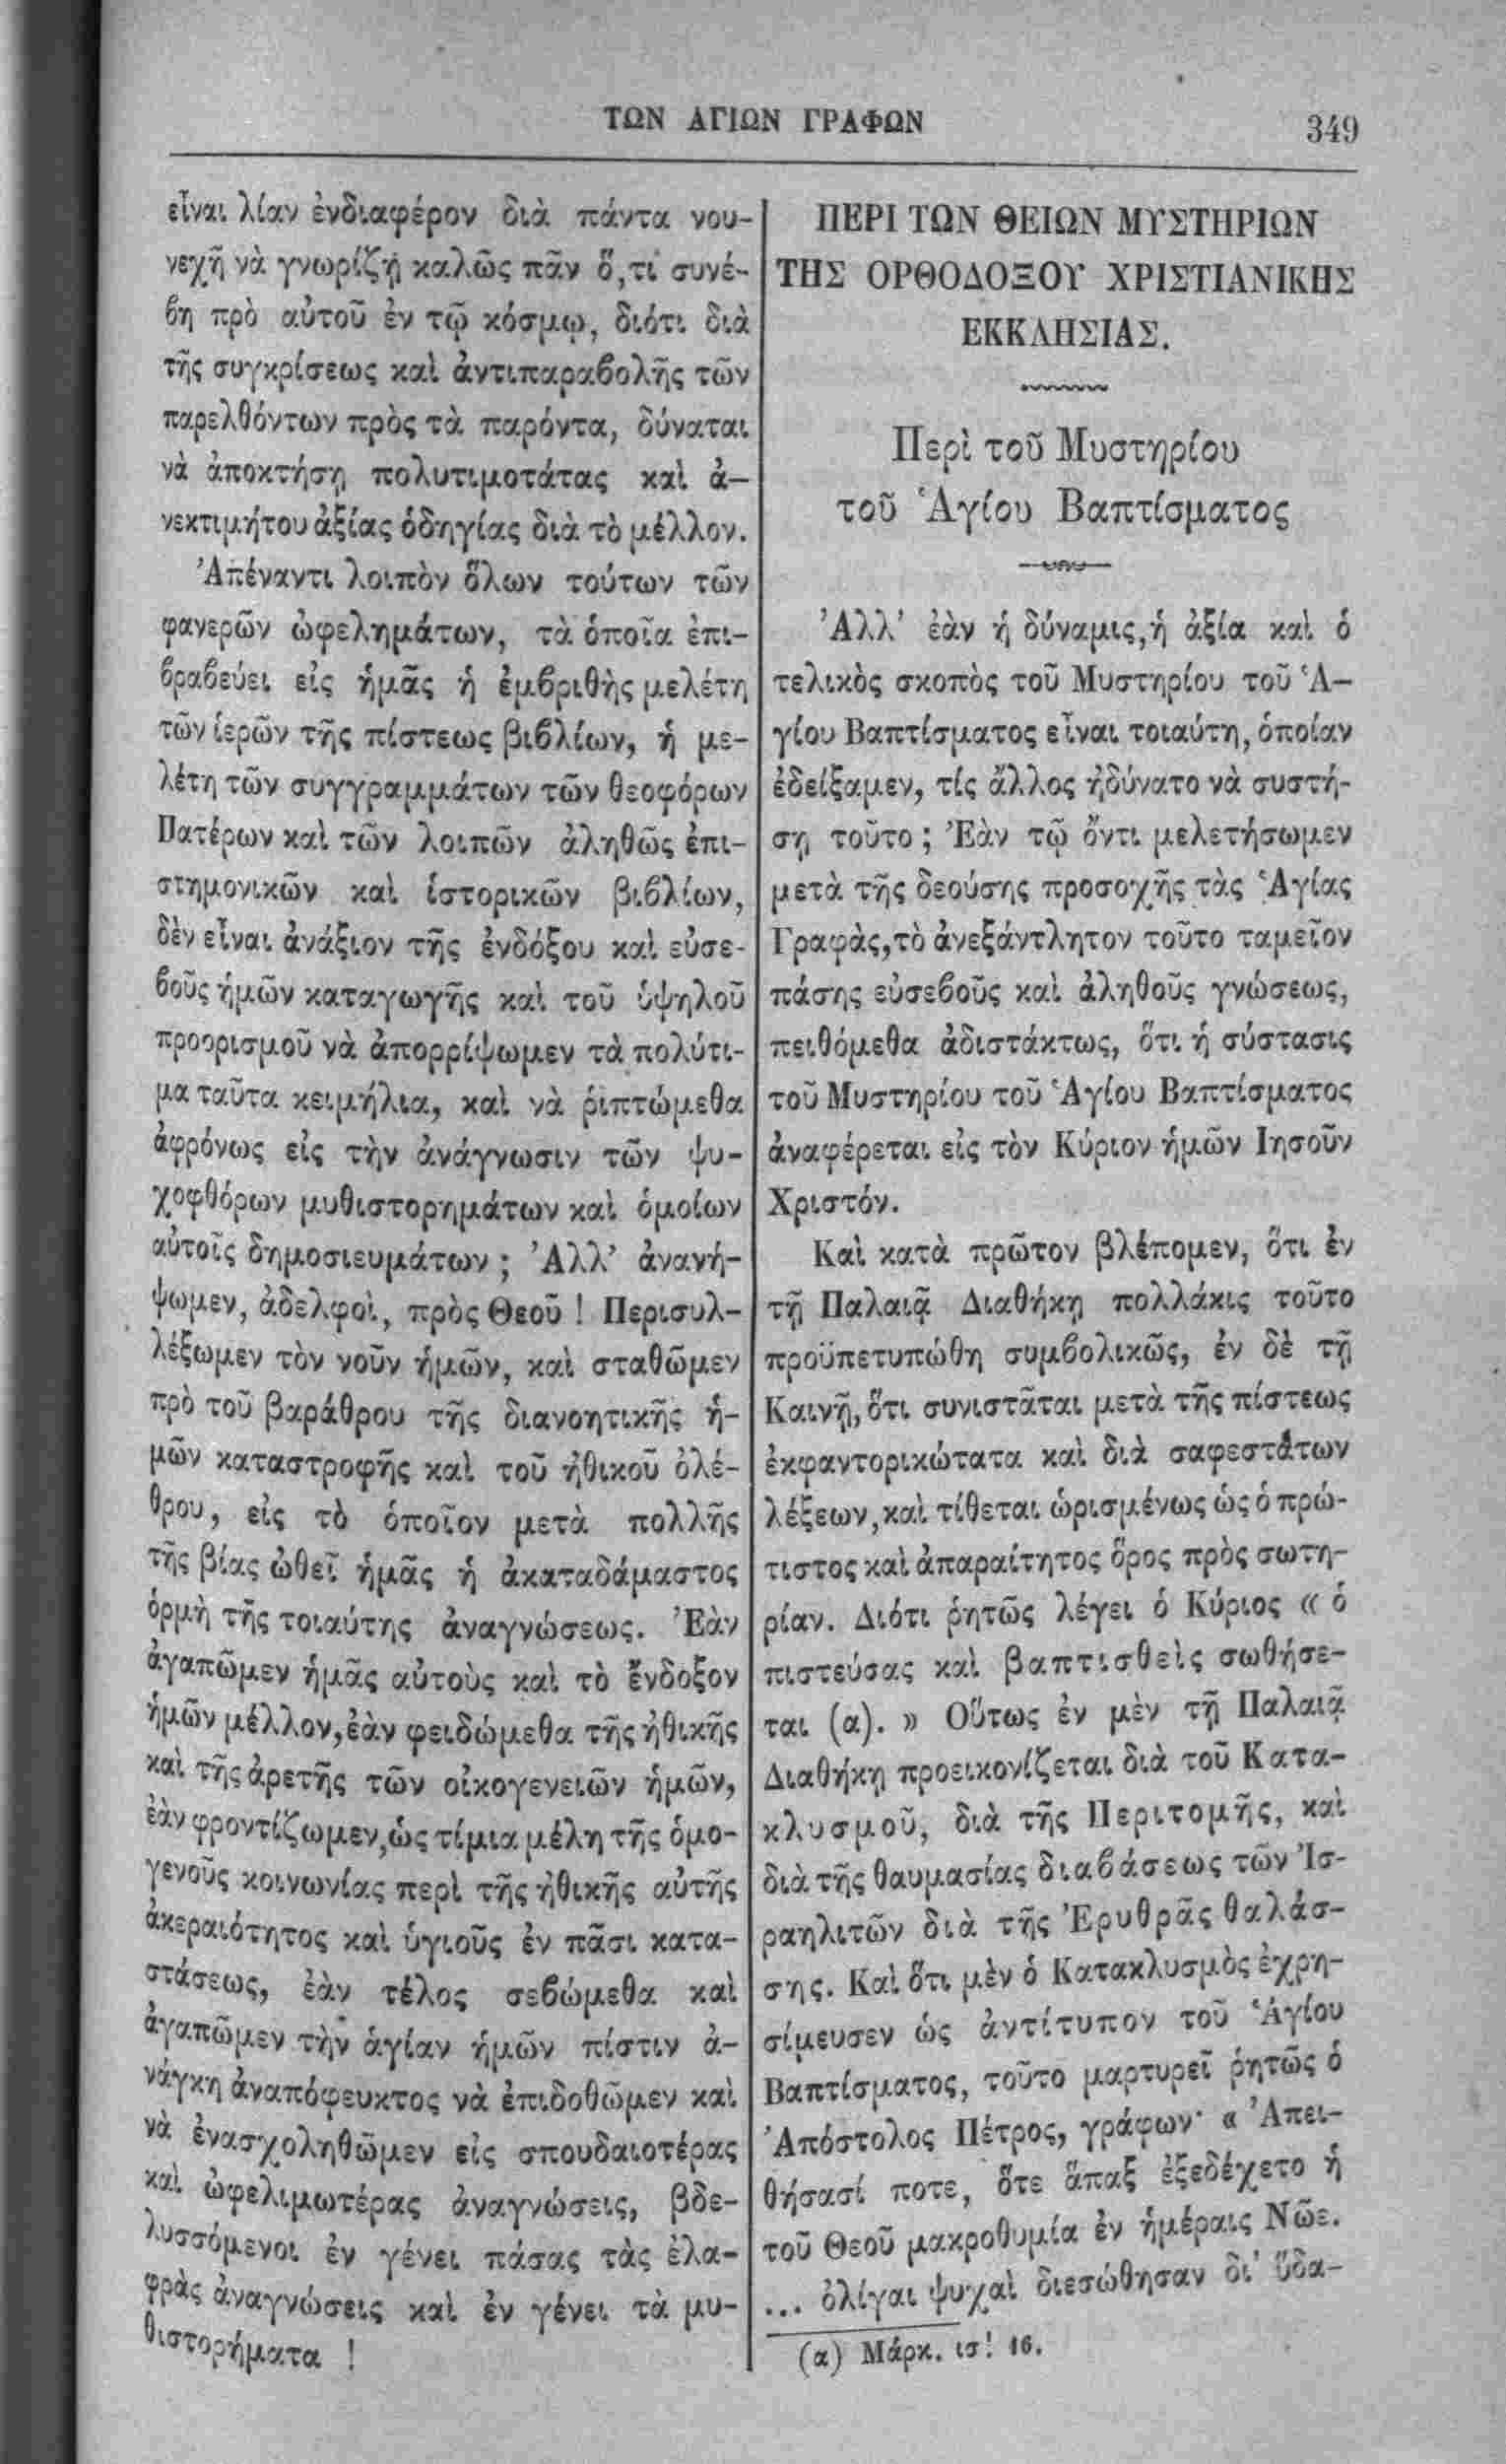 ΤΩΝ ΑΓΙΩΝ ΓΡΑΦΩΝ
349
εἶναι λίαν ἐνδιαφέρον διὰ πάντα νου-
νεχῆ νὰ γνωρίζῃ καλῶς πᾶν ὅ,τι συνέ-
βη πρὸ αὐτοῦ ἐν τῷ κόσμῳ, διότι διὰ
τῆς συγκρίσεως καὶ ἀντιπαραβολῆς τῶν
παρελθόντων πρὸς τὰ παρόντα, δύναται
νὰ ἀποκτήσῃ πολυτιμοτάτας καὶ ἀ-
νεκτιμήτου ἀξίας ὁδηγίας διὰ τὸ μέλλον.
Ἀπέναντι λοιπὸν ὅλων τούτων τῶν
φανερῶν ὠφελημάτων, τὰ ὁποῖα ἐπι-
βραβεύει εἰς ἡμᾶς ἡ ἐμβριθὴς μελέτη
τῶν ἱερῶν τῆς πίστεως βιβλίων, ἡ με-
λέτη τῶν συγγραμμάτων τῶν θεοφόρων
Πατέρων καὶ τῶν λοιπῶν ἀληθῶς ἐπι-
στημονικῶν καὶ ἱστορικῶν βιβλίων,
δὲν εἶναι ἀνάξιον τῆς ἐνδόξου καὶ εὐσε-
βοῦς ἡμῶν καταγωγῆς καὶ τοῦ ὑψηλοῦ
προορισμοῦ νὰ ἀπορρίψωμεν τὰ πολύτι-
μα ταῦτα κειμήλια, καὶ νὰ ῥιπτώμεθα
ἀφρόνως εἰς τὴν ἀνάγνωσιν τῶν ψυ-
χοφθόρων μυθιστορημάτων καὶ ὁμοίων
αὐτοῖς δημοσιευμάτων ; Ἀλλ' ἀνανή-
ψωμεν, ἀδελφοὶ, πρὸς Θεοῦ ! Περισυλ-
λέξωμεν τὸν νοῦν ἡμῶν, καὶ σταθῶμεν
πρὸ τοῦ βαράθρου τῆς διανοητικῆς ἡ-
μῶν καταστροφῆς καὶ τοῦ ἠθικοῦ ὀλέ-
θρου, εἰς τὸ ὁποῖον μετὰ πολλῆς
τῆς βίας ὠθεῖ ἡμᾶς ἡ ἀκαταδάμαστος
ὁρμὴ τῆς τοιαύτης ἀναγνώσεως. Ἐὰν
ἀγαπῶμεν ἡμᾶς αὐτοὺς καὶ τὸ ἔνδοξον
ἡμῶν μέλλον, ἐὰν φειδώμεθα τῆς ἠθικῆς
καὶ τῆς ἀρετῆς τῶν οἰκογενειῶν ἡμῶν,
ἐὰν φροντίζωμεν, ὡς τίμια μέλη τῆς ὁμο-
γενοῦς κοινωνίας περὶ τῆς ἠθικῆς αὐτῆς
ἀκεραιότητος καὶ ὑγιοῦς ἐν πᾶσι κατα-
στάσεως, ἐὰν τέλος σεβώμεθα καὶ
ἀγαπῶμεν τὴν ἁγίαν ἡμῶν πίστιν ἀ-
νάγκη ἀναπόφευκτος νὰ ἐπιδοθῶμεν καὶ
νὰ ἐνασχοληθῶμεν εἰς σπουδαιοτέρας
καὶ ὠφελιμωτέρας ἀναγνώσεις, βδε-
λυσσόμενοι ἐν γένει πάσας τὰς ἐλα-
φρὰς ἀναγνώσεις καὶ ἐν γένει τὰ μυ-
θιστορήματα !
ΠΕΡΙ ΤΩΝ ΘΕΙΩΝ ΜΥΣΤΗΡΙΩΝ
ΤΗΣ ΟΡΘΟΔΟΞΟΥ ΧΡΙΣΤΙΑΝΙΚΗΣ
ΕΚΚΛΗΣΙΑΣ.
Περὶ τοῦ Μυστηρίου
τοῦ Ἁγίου Βαπτίσματος
Ἀλλ' ἐὰν ἡ δύναμις, ἡ ἀξία καὶ ὁ
τελικὸς σκοπὸς τοῦ Μυστηρίου τοῦ Ἁ-
γίου Βαπτίσματος εἶναι τοιαύτη, ὁποίαν
ἐδείξαμεν, τίς ἄλλος ἠδύνατο νὰ συστή-
σῃ τοῦτο ; Ἐὰν τῷ ὄντι μελετήσωμεν
μετὰ τῆς δεούσης προσοχῆς τὰς Ἁγίας
Γραφὰς, τὸ ἀνεξάντλητον τοῦτο ταμεῖον
πάσης εὐσεβοῦς καὶ ἀληθοῦς γνώσεως,
πειθόμεθα ἀδιστάκτως, ὅτι ἡ σύστασις
τοῦ Μυστηρίου τοῦ Ἁγίου Βαπτίσματος
ἀναφέρεται εἰς τὸν Κύριον ἡμῶν Ιησοῦν
Χριστόν.
Καὶ κατὰ πρῶτον βλέπομεν, ὅτι ἐν
τῇ Παλαιᾷ Διαθήκῃ πολλάκις τοῦτο
προϋπετυπώθη συμβολικῶς, ἐν δὲ τῇ
Καινῇ, ὅτι συνιστᾶται μετὰ τῆς πίστεως
ἐκφαντορικώτατα καὶ διὰ σαφεστάτων
λέξεων, καὶ τίθεται ὡρισμένως ὡς ὁ πρώ-
τιστος καὶ ἀπαραίτητος ὅρος πρὸς σωτη-
ρίαν. Διότι ῥητῶς λέγει ὁ Κύριος « ὁ
πιστεύσας καὶ βαπτισθεὶς σωθήσε-
ται (α). » Οὕτως ἐν μὲν τῇ Παλαιᾷ
Διαθήκῃ προεικονίζεται διὰ τοῦ Κατα-
κλυσμοῦ, διὰ τῆς Περιτομῆς, καὶ
διὰ τῆς θαυμασίας διαβάσεως τῶν Ἰσ-
ραηλιτῶν διὰ τῆς Ἐρυθρᾶς θαλάσ-
σης. Καὶ ὅτι μὲν ὁ Κατακλυσμὸς ἐχρη-
σίμευσεν ὡς ἀντίτυπον τοῦ Ἁγίου
Βαπτίσματος, τοῦτο μαρτυρεῖ ῥητῶς ὁ
Ἀπόστολος Πέτρος, γράφων· « Ἀπει-
θήσασί ποτε, ὅτε ἅπαξ ἐξεδέχετο ἡ
τοῦ Θεοῦ μακροθυμία ἐν ἡμέραις Νῶε.
... ὀλίγαι ψυχαὶ διεσώθησαν δι' ὕδα-
(α) Μάρκ. ις! 16.